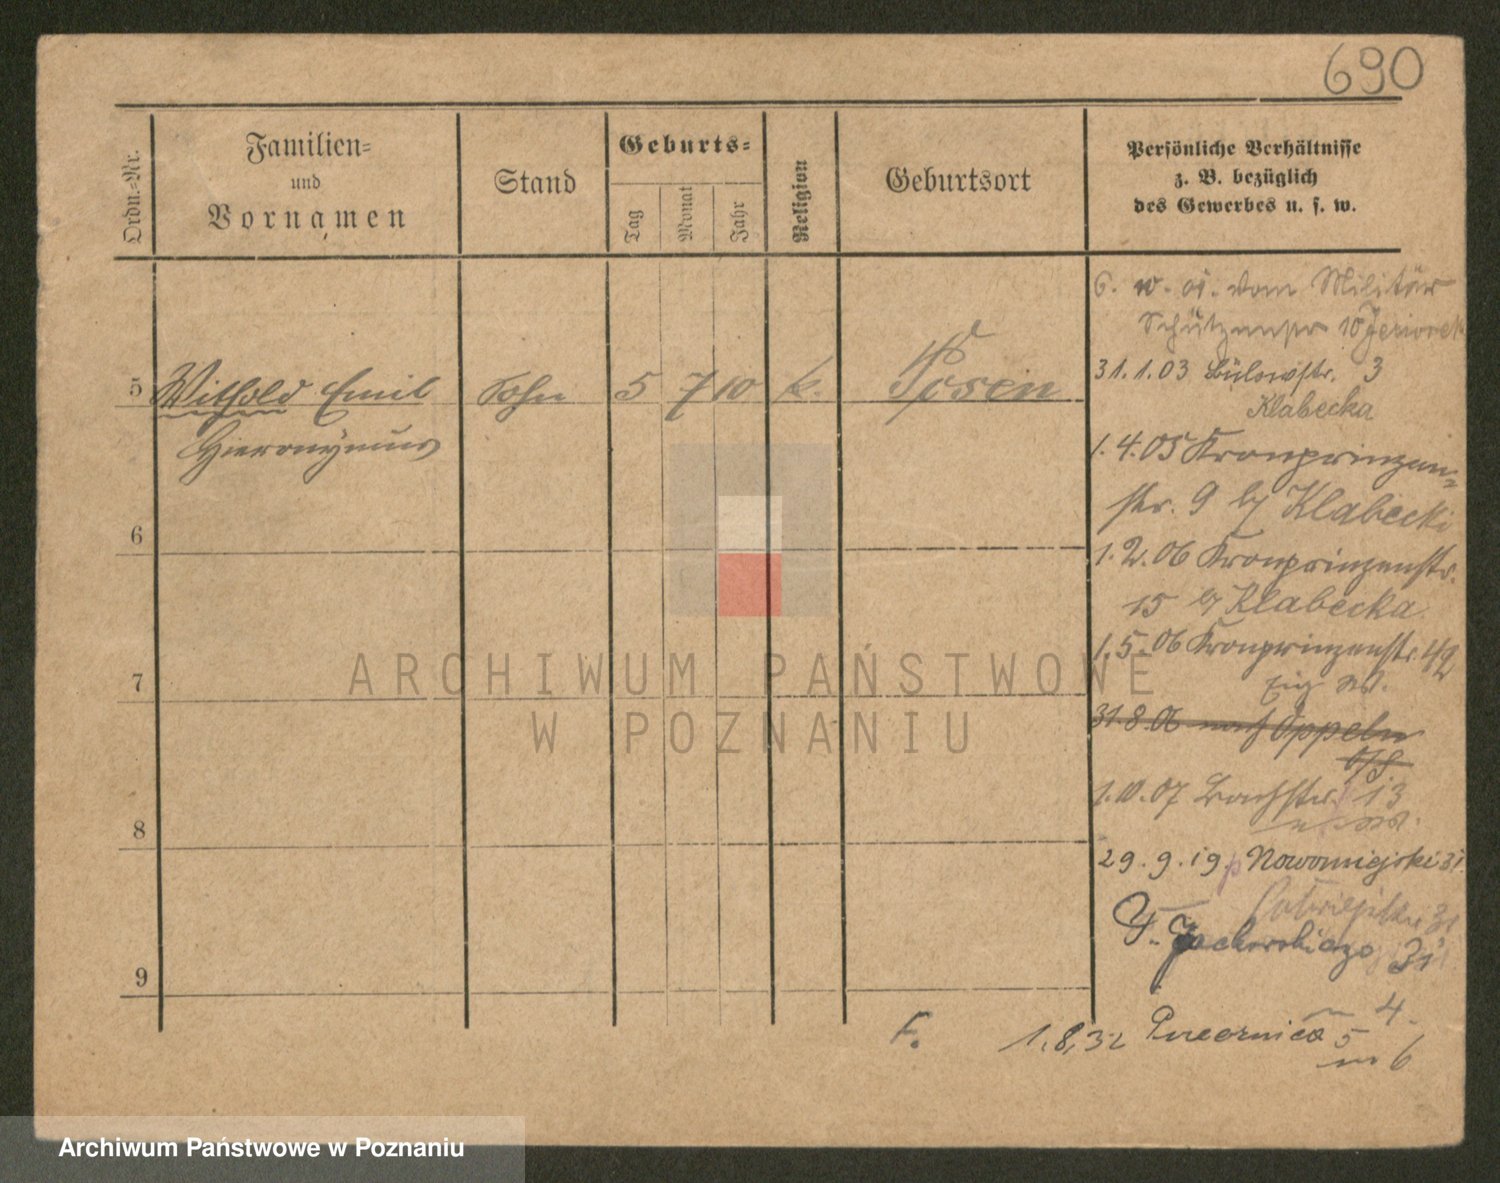 690
Ordn.-Nr.
Familien-
und
Vornamen
Stand
Geburts-
Tag
Monat
Jahr
Religion
Geburtsort
Persönliche Verhältnisse
z. B. bezüglich
des Gewerbes u. s. w.
6. 10. 01. vom Militär
Schützenstr 10
31.1.03 Bülowstr. 3
Klabecka
5 Withold Emil Sohn 5 7 10 k. Posen
Hieronymus
1.4.05 Kronprinzen-
str. 9 b/ Klabecki
6
1.2.06 Kronprinzenstr.
15 b/ Klabecka
1.5.06 Kronprinzenstr. 42
7
31.8.06 nach Oppeln
O/S
1.10.07 Bachstr. 13
8
29.9.19 p Nowomiejski 31
31
31
9
F. 1.8.32 4
5
m 6
ARCHIWUM PAŃSTWOWE
W POZNANIU
Archiwum Państwowe w Poznaniu